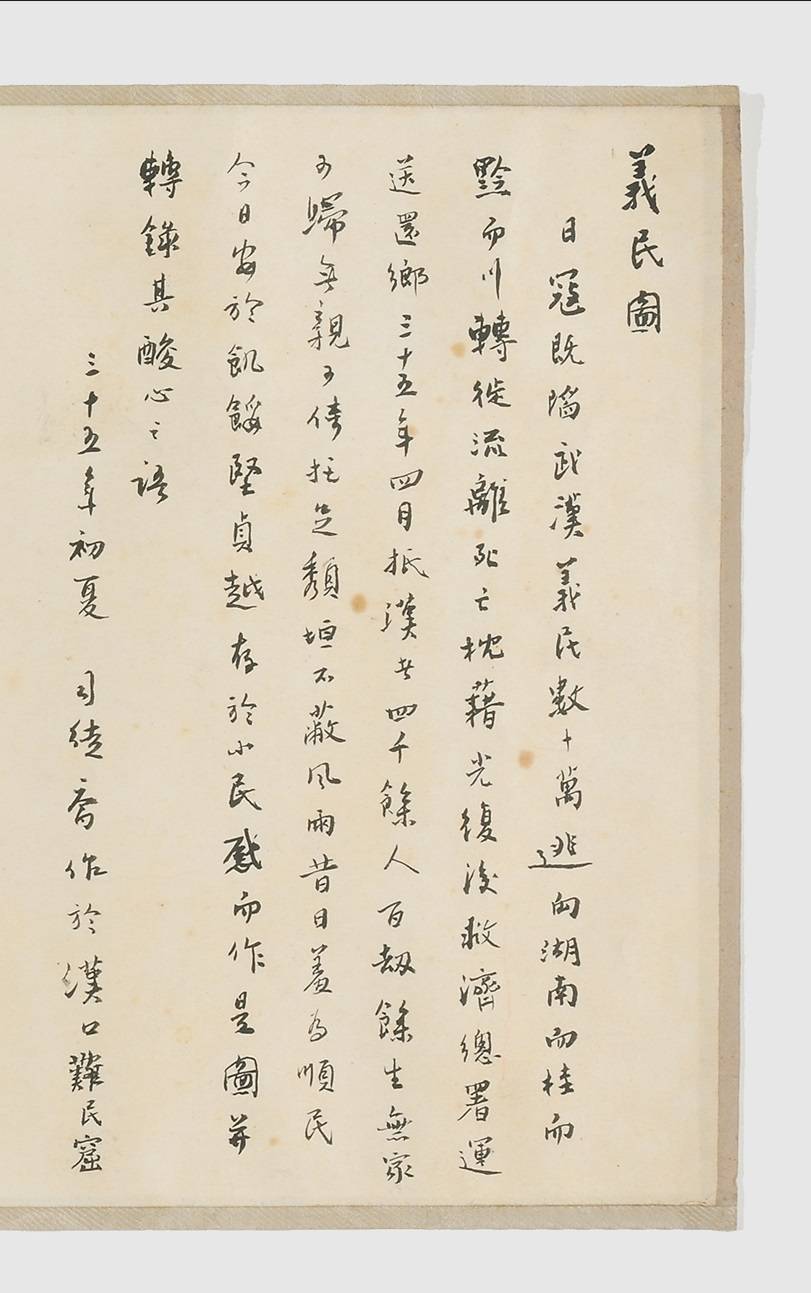 義民圖
日寇既陷武漢義民數十萬逃向湖南而桂而
黔而川轉徙流離死亡枕藉光復後救濟總署運
送還鄉三十五年四月抵漢者四千餘人百劫餘生無家
可歸無親可倚託足頹垣不蔽風雨昔日羞為順民
今日安於飢餒堅貞越存於小民感而作是圖并
轉錄其酸心之語
三十五年初夏 司徒喬作於漢口難民窟